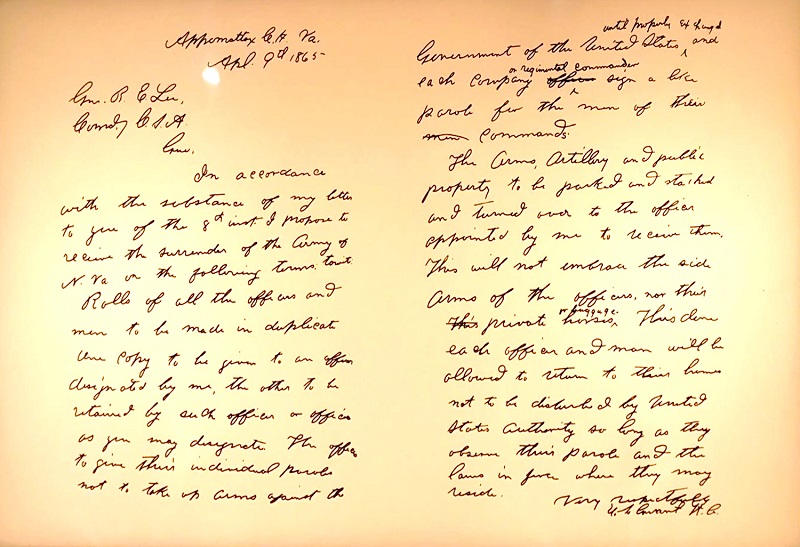 Appomattox C.H. Va.
Apl. 9th 1865
Gen. R. E. Lee,
Comd.g C.S.A.
Gen.
In accordance
with the substance of my letter
to you of the 8th inst. I propose to
receive the surrender of the Army of
N. Va. on the following terms, towit:
Rolls of all the officers and
men to be made in duplicate
One copy to be given to an officer
designated by me, the other to be
retained by such officer or officers
as you may designate. The officers
to give their individual paroles
not to take up arms against the
until properly exchanged
Government of the United States, and
or regimental commander
each company officer sign a like
parole for the men of their
men commands.
The Arms, Artillery and public
property to be parked and stacked
and turned over to the officer
appointed by me to receive them.
This will not embrace the side
Arms of the officers, nor their
or baggage.
This private horses, This done
each officer and man will be
allowed to return to their homes
not to be disturbed by United
States Authority so long as they
observe their parole and the
laws in force where they may
reside.
Very respectfully
U. S. Grant Lt. G.